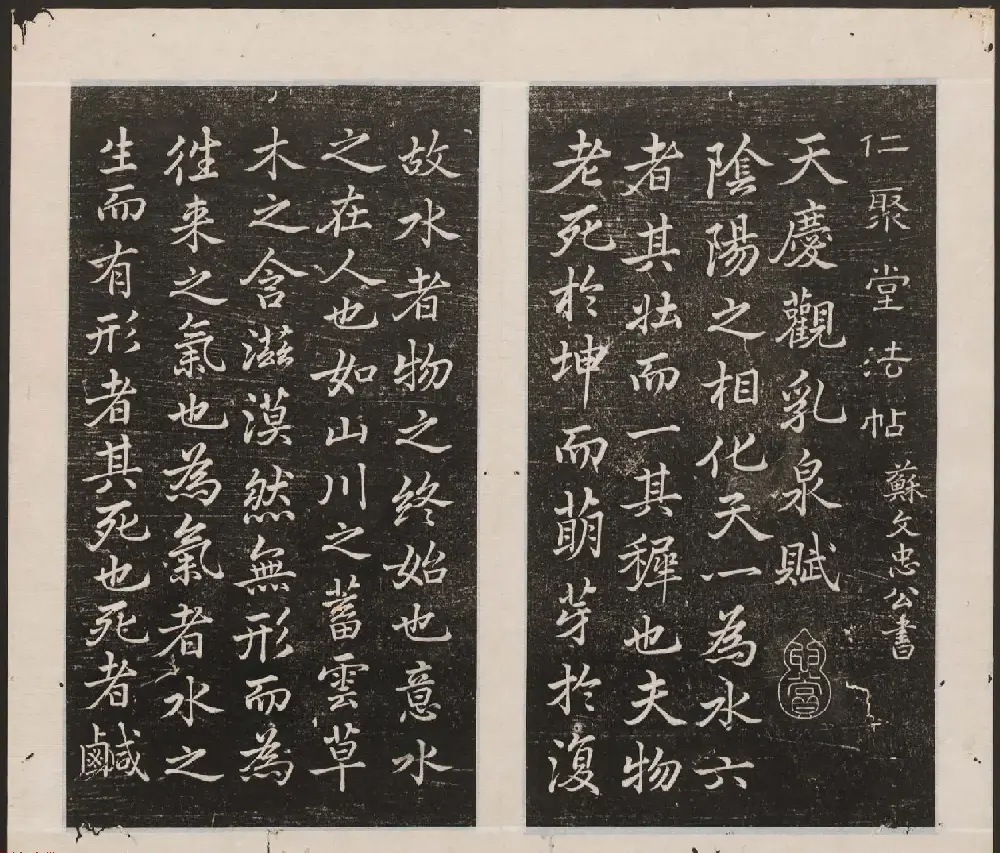 仁聚堂法帖 蘇文忠公書
天慶觀乳泉賦
陰陽之相化天一為水六
者其壯而一其穉也夫物
老死於坤而萌芽於復
故水者物之終始也意水
之在人也如山川之蓄雲草
木之含滋漠然無形而為
往来之氣也為氣者水之
生而有形者其死也死者鹹